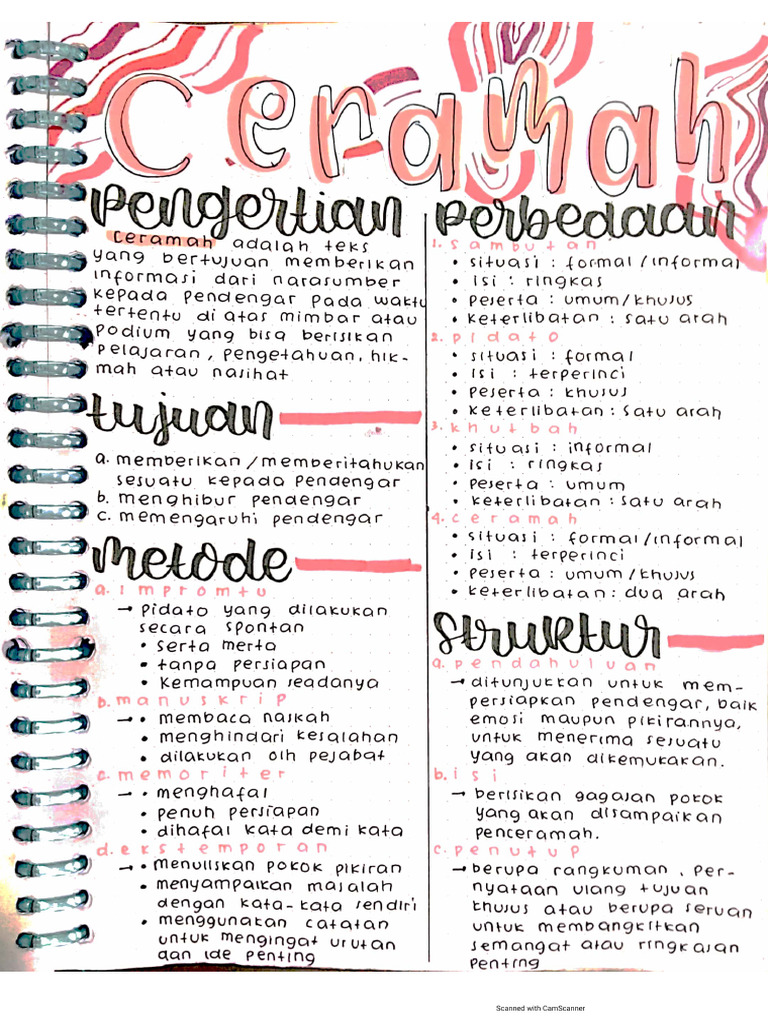 Ceramah
Pengertian
Ceramah adalah teks
yang bertujuan memberikan
informasi dari narasumber
kepada pendengar pada waktu
tertentu di atas mimbar atau
podium yang bisa berisikan
pelajaran, pengetahuan, hik-
mah atau nasihat
tujuan
a. memberikan/memberitahukan
sesuatu kepada pendengar
b. menghibur pendengar
c. memengaruhi pendengar
metode
a. impromtu
→ pidato yang dilakukan
secara spontan
• serta merta
• tanpa persiapan
• kemampuan seadanya
b. manuskrip
→ • membaca naskah
• menghindari kesalahan
• dilakukan olh pejabat
c. memoriter
→ • menghafal
• penuh persiapan
• dihafal kata demi kata
d. ekstemporan
→ • menuliskan pokok pikiran
• menyampaikan masalah
dengan kata-kata sendiri
• menggunakan catatan
untuk mengingat urutan
dan ide penting
perbedaan
1. sambutan
• situasi : formal/informal
• isi : ringkas
• peserta : umum/khusus
• keterlibatan : satu arah
2. pidato
• situasi : formal
• isi : terperinci
• peserta : khusus
• keterlibatan : satu arah
3. khutbah
• situasi : informal
• isi : ringkas
• peserta : umum
• keterlibatan : satu arah
4. ceramah
• situasi : formal/informal
• isi : terperinci
• peserta : umum/khusus
• keterlibatan : dua arah
struktur
a. pendahuluan
→ ditunjukkan untuk mem-
persiapkan pendengar, baik
emosi maupun pikirannya,
untuk menerima sesuatu
yang akan dikemukakan.
b. isi
→ berisikan gagasan pokok
yang akan disampaikan
penceramah.
c. penutup
→ berupa rangkuman, per-
nyataan ulang tujuan
khusus atau berupa seruan
untuk membangkitkan
semangat atau ringkasan
penting
Scanned with CamScanner